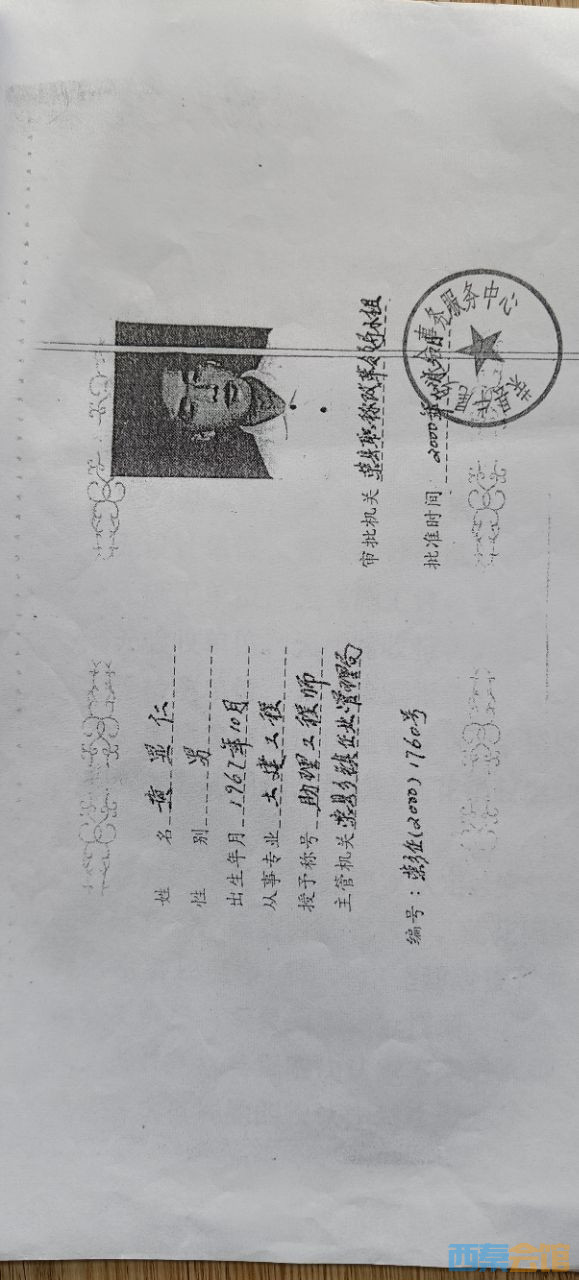 姓 名 黄显仁
性 别 男
出生年月 1967年10月
从事专业 土建工程
授予称号 助理工程师
主管机关 荣县乡镇企业管理局
编号:荣乡企(2000)1760号
审批机关 荣县职称改革领导小组
批准时间: 2000年
务服务中心
西秦会馆